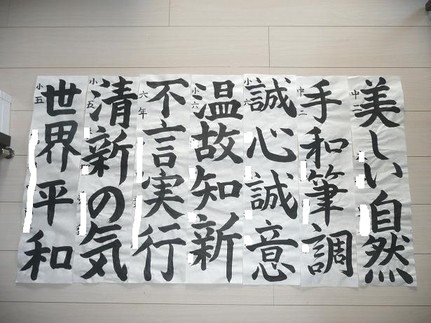 美しい自然
中二
手和筆調
中二
誠心誠意
小六
温故知新
小六
不言実行
六年
清新の気
小五
世界平和
小五